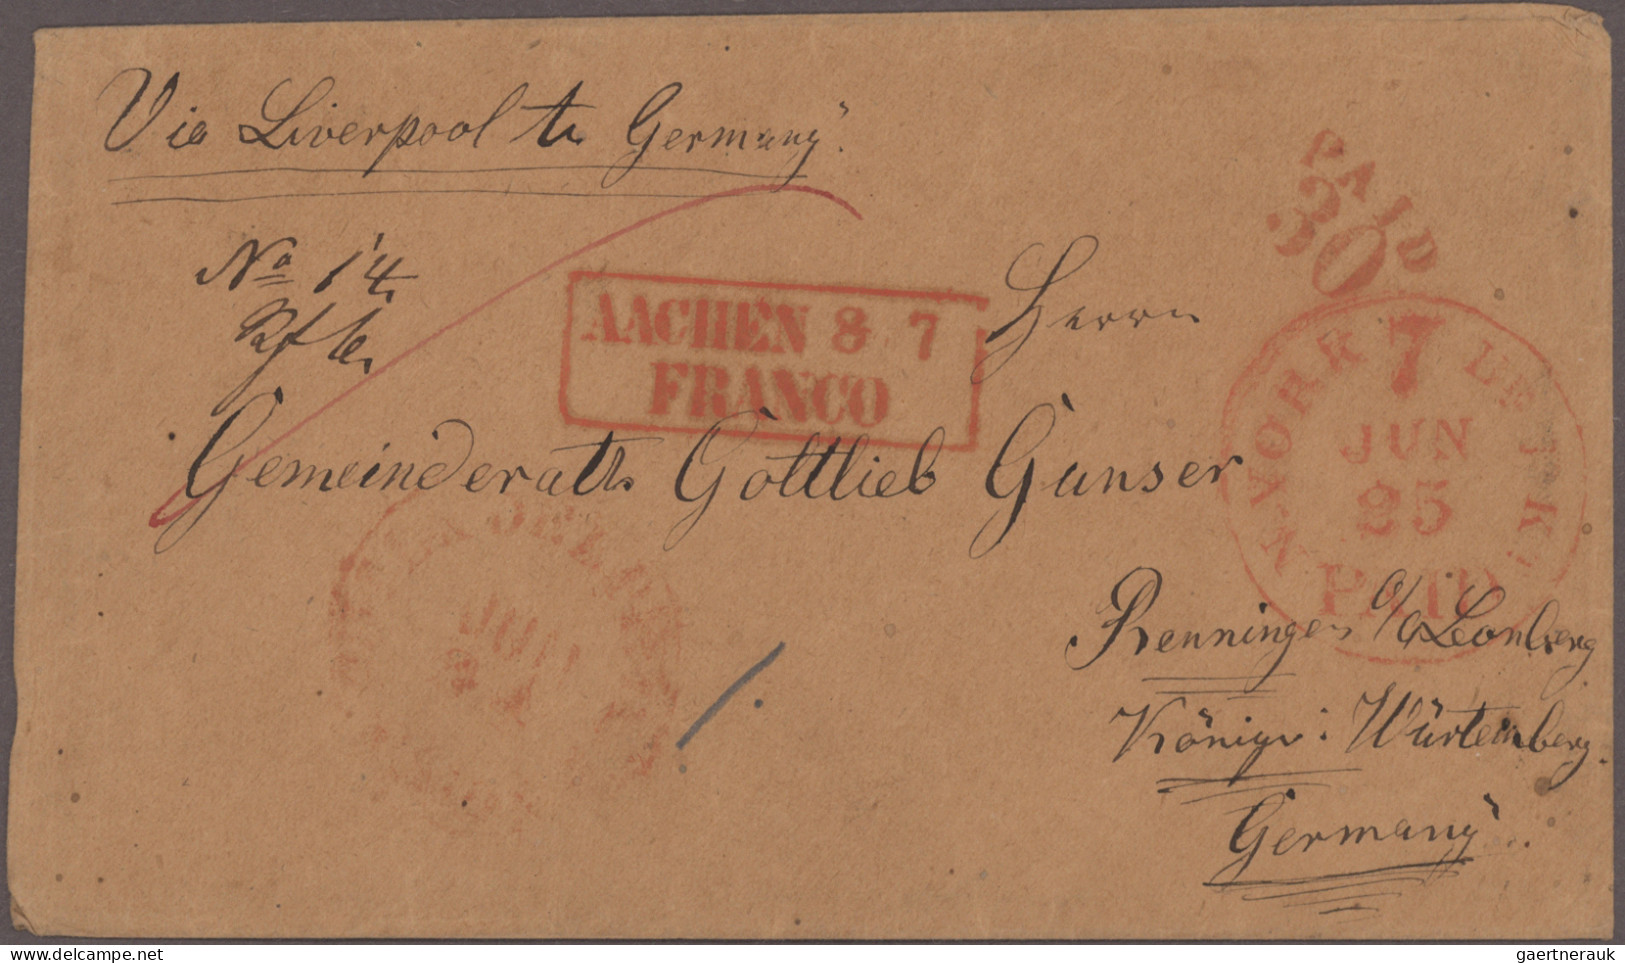 Via Liverpool to Germany.
PAID
30
No 14.
AACHEN 8 7
FRANCO
Herrn
Gemeinderath Gottlieb Ganser
N. YORK
7
JUN
25
PAID
JUN
Renningen o/a Leonberg
Königr: Würtemberg.
Germany
gaertnerauk